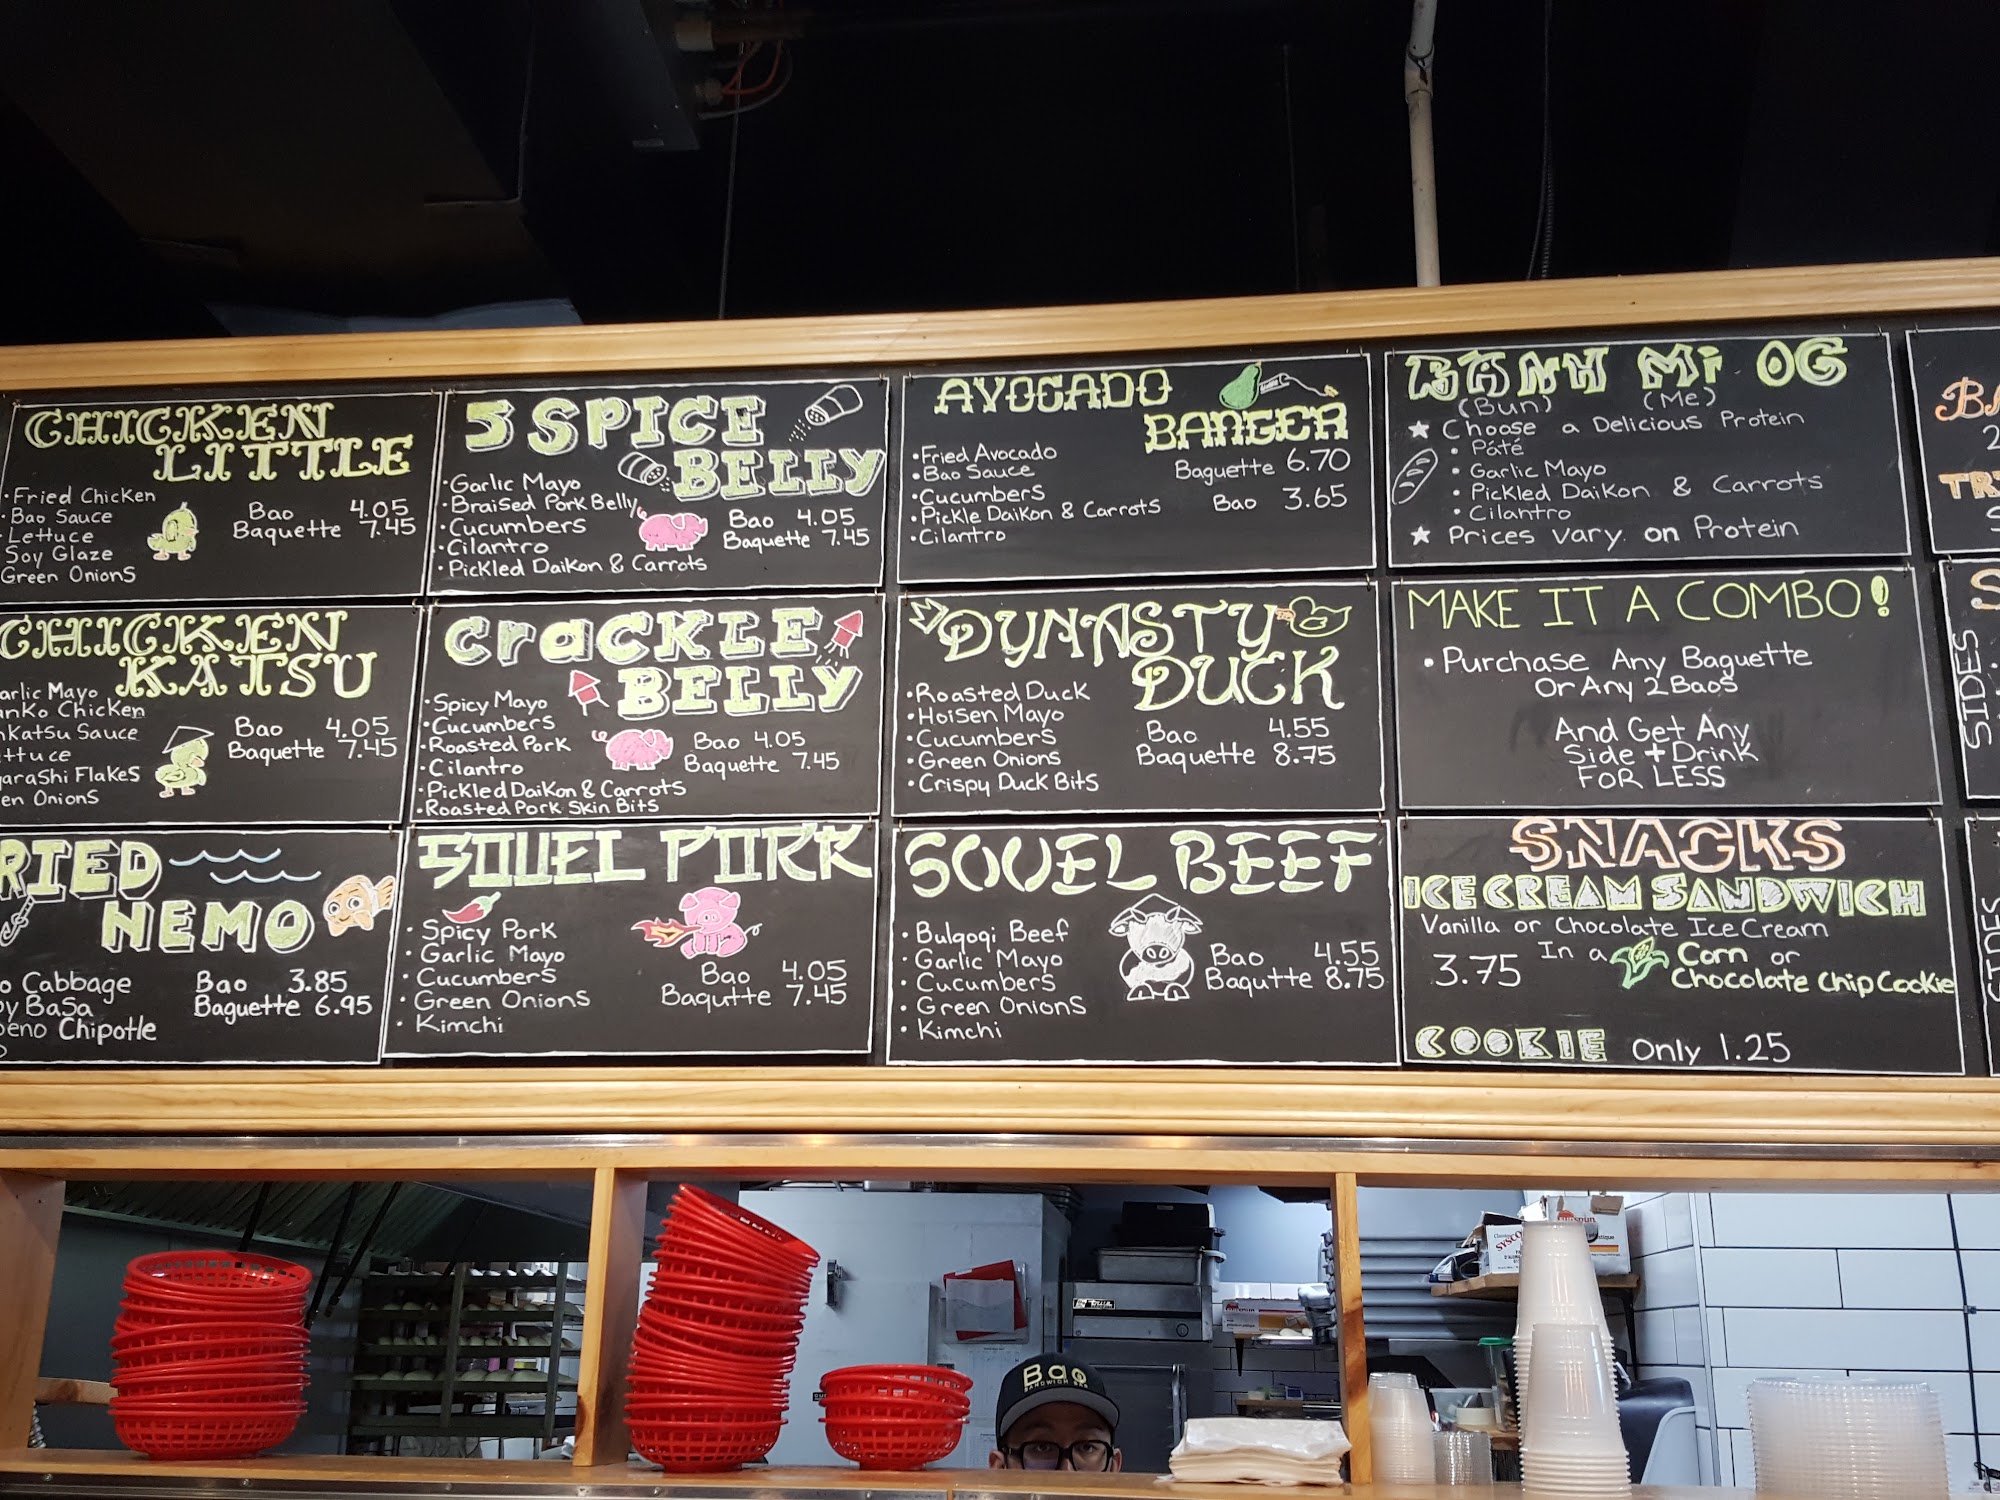 CHICKEN
LITTLE
· Fried Chicken
· Bao Sauce
· Lettuce
Soy Glaze
Green Onions
Bao 4.05
Baquette 7.45
5 SPICE
BELLY
· Garlic Mayo
· Braised Pork Belly
· Cucumbers
· Cilantro
· Pickled Daikon & Carrots
Bao 4.05
Baquette 7.45
AVOCADO
BANGER
· Fried Avocado
· Bao Sauce
· Cucumbers
· Pickle Daikon & Carrots
· Cilantro
Baguette 6.70
Bao 3.65
BÁNH MÌ OG
(Bun) (Me)
★ Choose a Delicious Protein
· Páté
· Garlic Mayo
· Pickled Daikon & Carrots
· Cilantro
★ Prices Vary on Protein
CHICKEN
KATSU
Mayo
Chicken
Sauce
Flakes
Onions
Bao 4.05
Baquette 7.45
CracKLE
BELLY
· Spicy Mayo
· Cucumbers
· Roasted Pork
· Cilantro
· Pickled Daikon & Carrots
· Roasted Pork Skin Bits
Bao 4.05
Baquette 7.45
DYNASTY
DUCK
· Roasted Duck
· Hoisen Mayo
· Cucumbers
· Green Onions
· Crispy Duck Bits
Bao 4.55
Baquette 8.75
MAKE IT A COMBO!
· Purchase Any Baguette
Or Any 2 Baos
And Get Any
Side + Drink
FOR LESS
SIDES
NEMO
Cabbage
BaSa
Chipotle
Bao 3.85
Baguette 6.95
SOUEL PORK
· Spicy Pork
· Garlic Mayo
· Cucumbers
· Green Onions
· Kimchi
Bao 4.05
Baqutte 7.45
SOUEL BEEF
· Bulgogi Beef
· Garlic Mayo
· Cucumbers
· Green Onions
· Kimchi
Bao 4.55
Baqutte 8.75
SNACKS
ICE CREAM SANDWICH
Vanilla or Chocolate Ice Cream
In a Corn or
3.75 Chocolate Chip Cookie
COOKIE Only 1.25
Bao
SANDWICH BAR
SYSCO